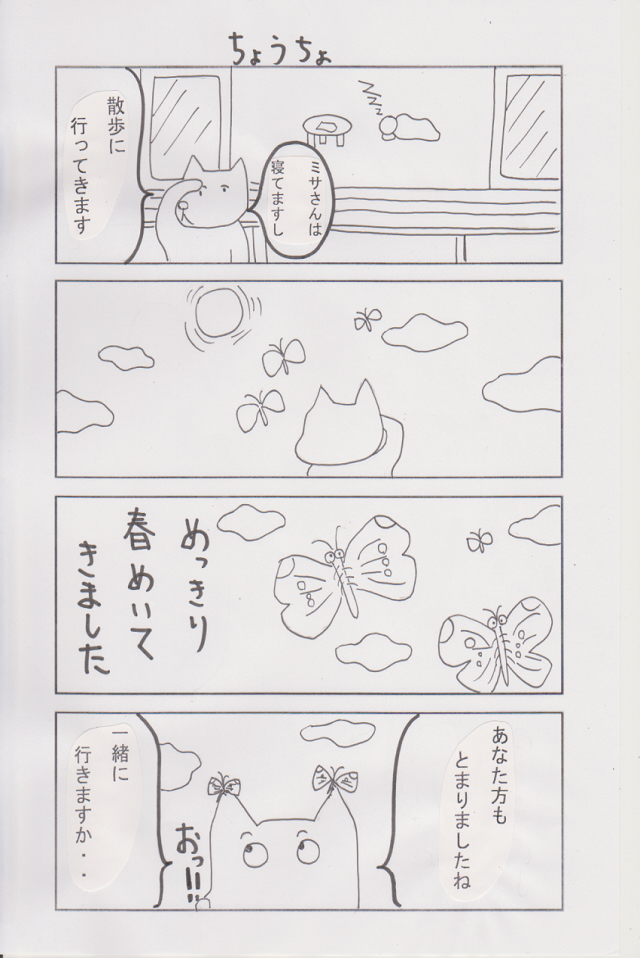 ちょうちょ
ミサさんは
寝てますし
散歩に
行ってきます
めっきり
春めいて
きました
あなた方も
とまりましたね
おっ!!
一緒に
行きますか・・